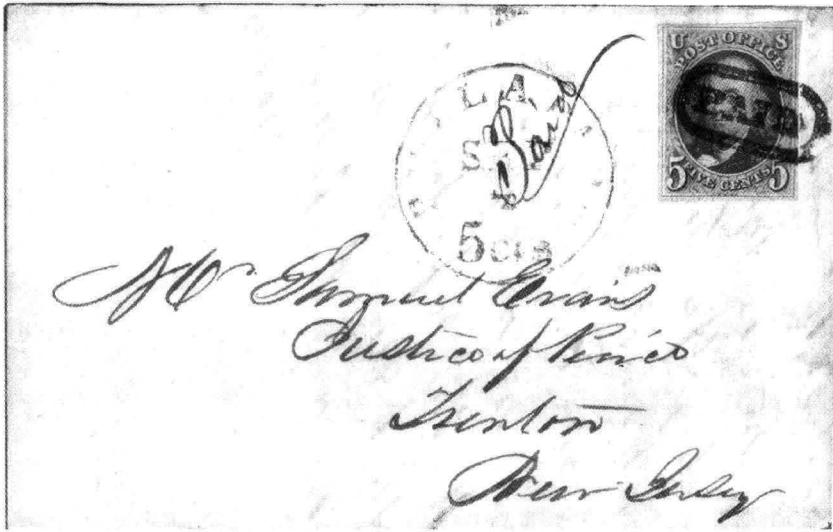 U S
POST OFFICE
PAID
5 FIVE CENTS 5
L. A.
S
5 cts
Mr Samuel Evans
Justice of Peace
Trenton
New Jersey